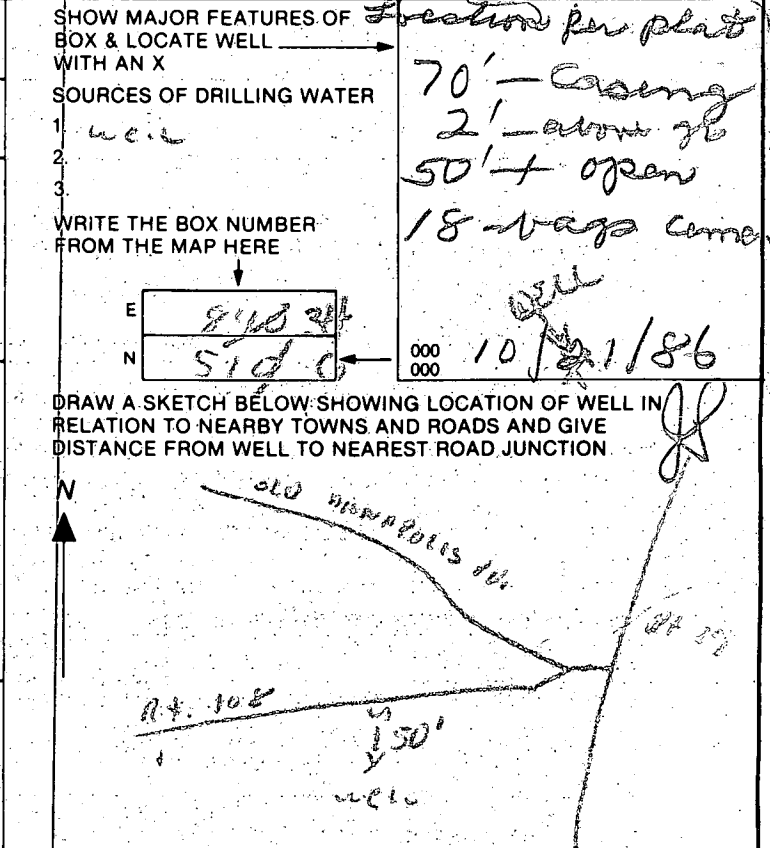 SHOW MAJOR FEATURES OF
BOX & LOCATE WELL
WITH AN X
SOURCES OF DRILLING WATER
1. well
2.
3.
WRITE THE BOX NUMBER
FROM THE MAP HERE
E
N 510
Location per plat
70' - Casing
2' - above
50' + open
18 - bags
Well
000
000
10/21/86
DRAW A SKETCH BELOW SHOWING LOCATION OF WELL IN
RELATION TO NEARBY TOWNS AND ROADS AND GIVE
DISTANCE FROM WELL TO NEAREST ROAD JUNCTION
N
OLD ANNAPOLIS
Rt. 108
50'
well